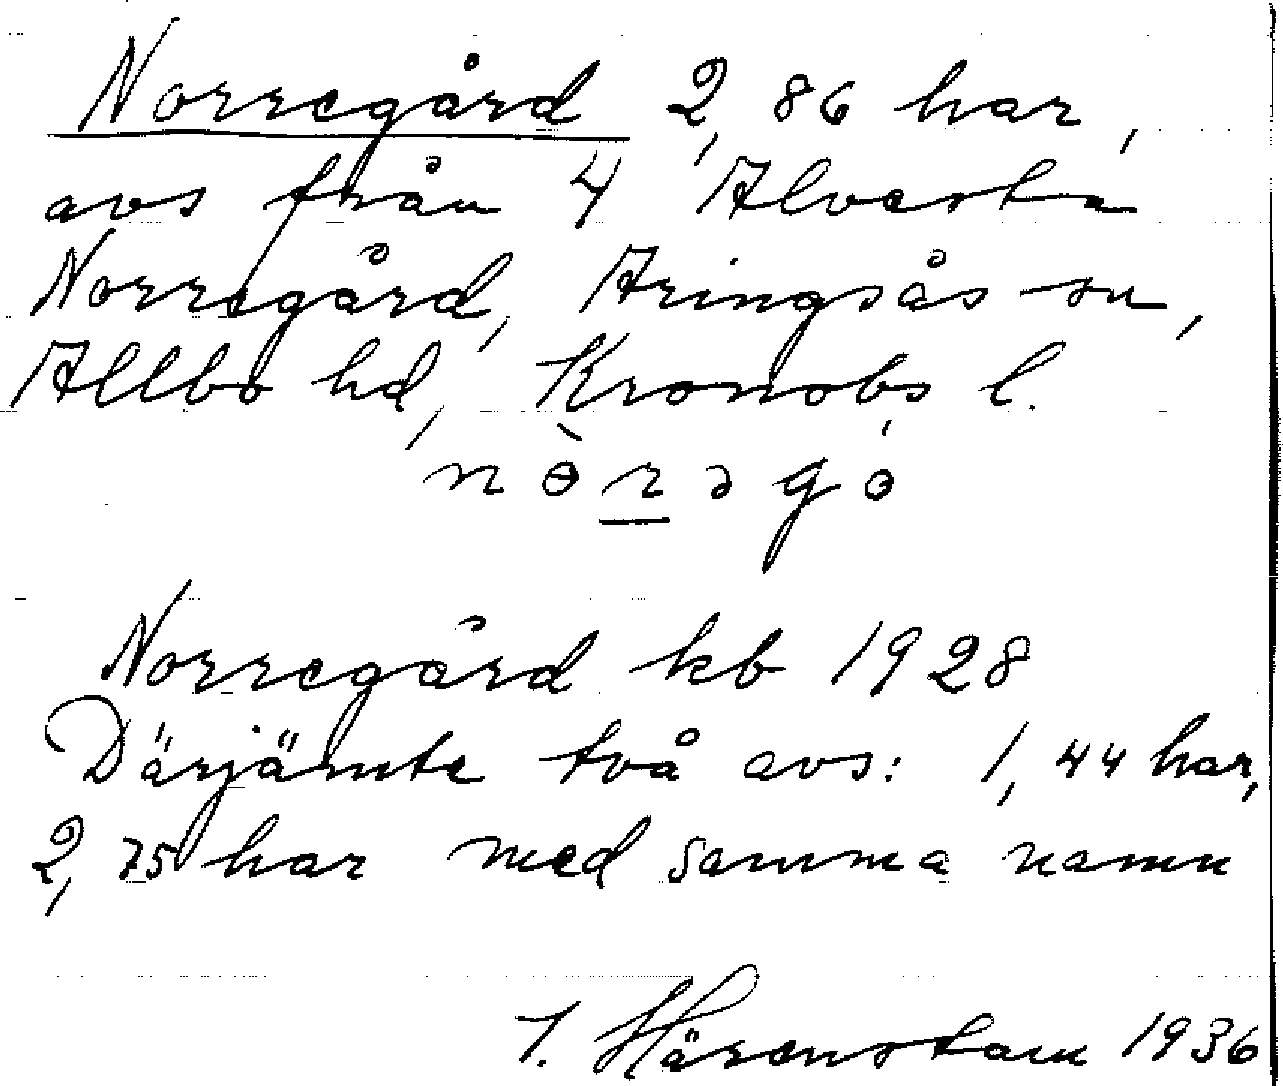 Norregård 2,86 har,
avs från 4 Alvesta
Norregård, Aringsås sn,
Allbo hd, Kronobs l.
n ɵ̀ r ə g ó
Norregård kb 1928
Därjämte två avs: 1,44 har,
2,75 har med samma namn
I. Härenstam 1936